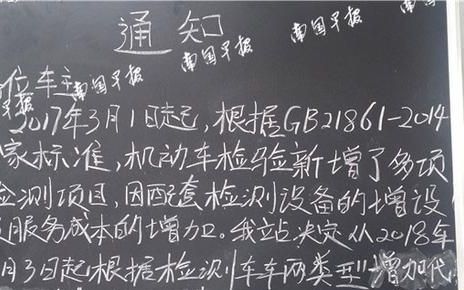 通知
南国早报 南国早报 南国早报
位车主 南国早报 南国早报
早报
2017年3月1日起,根据GB21861-2014
家标准,机动车检验新增了多项
检测项目,因配套检测设备的增设
服务成本的增加。我站决定从2018年
月3日起根据检测车车辆类型增加代